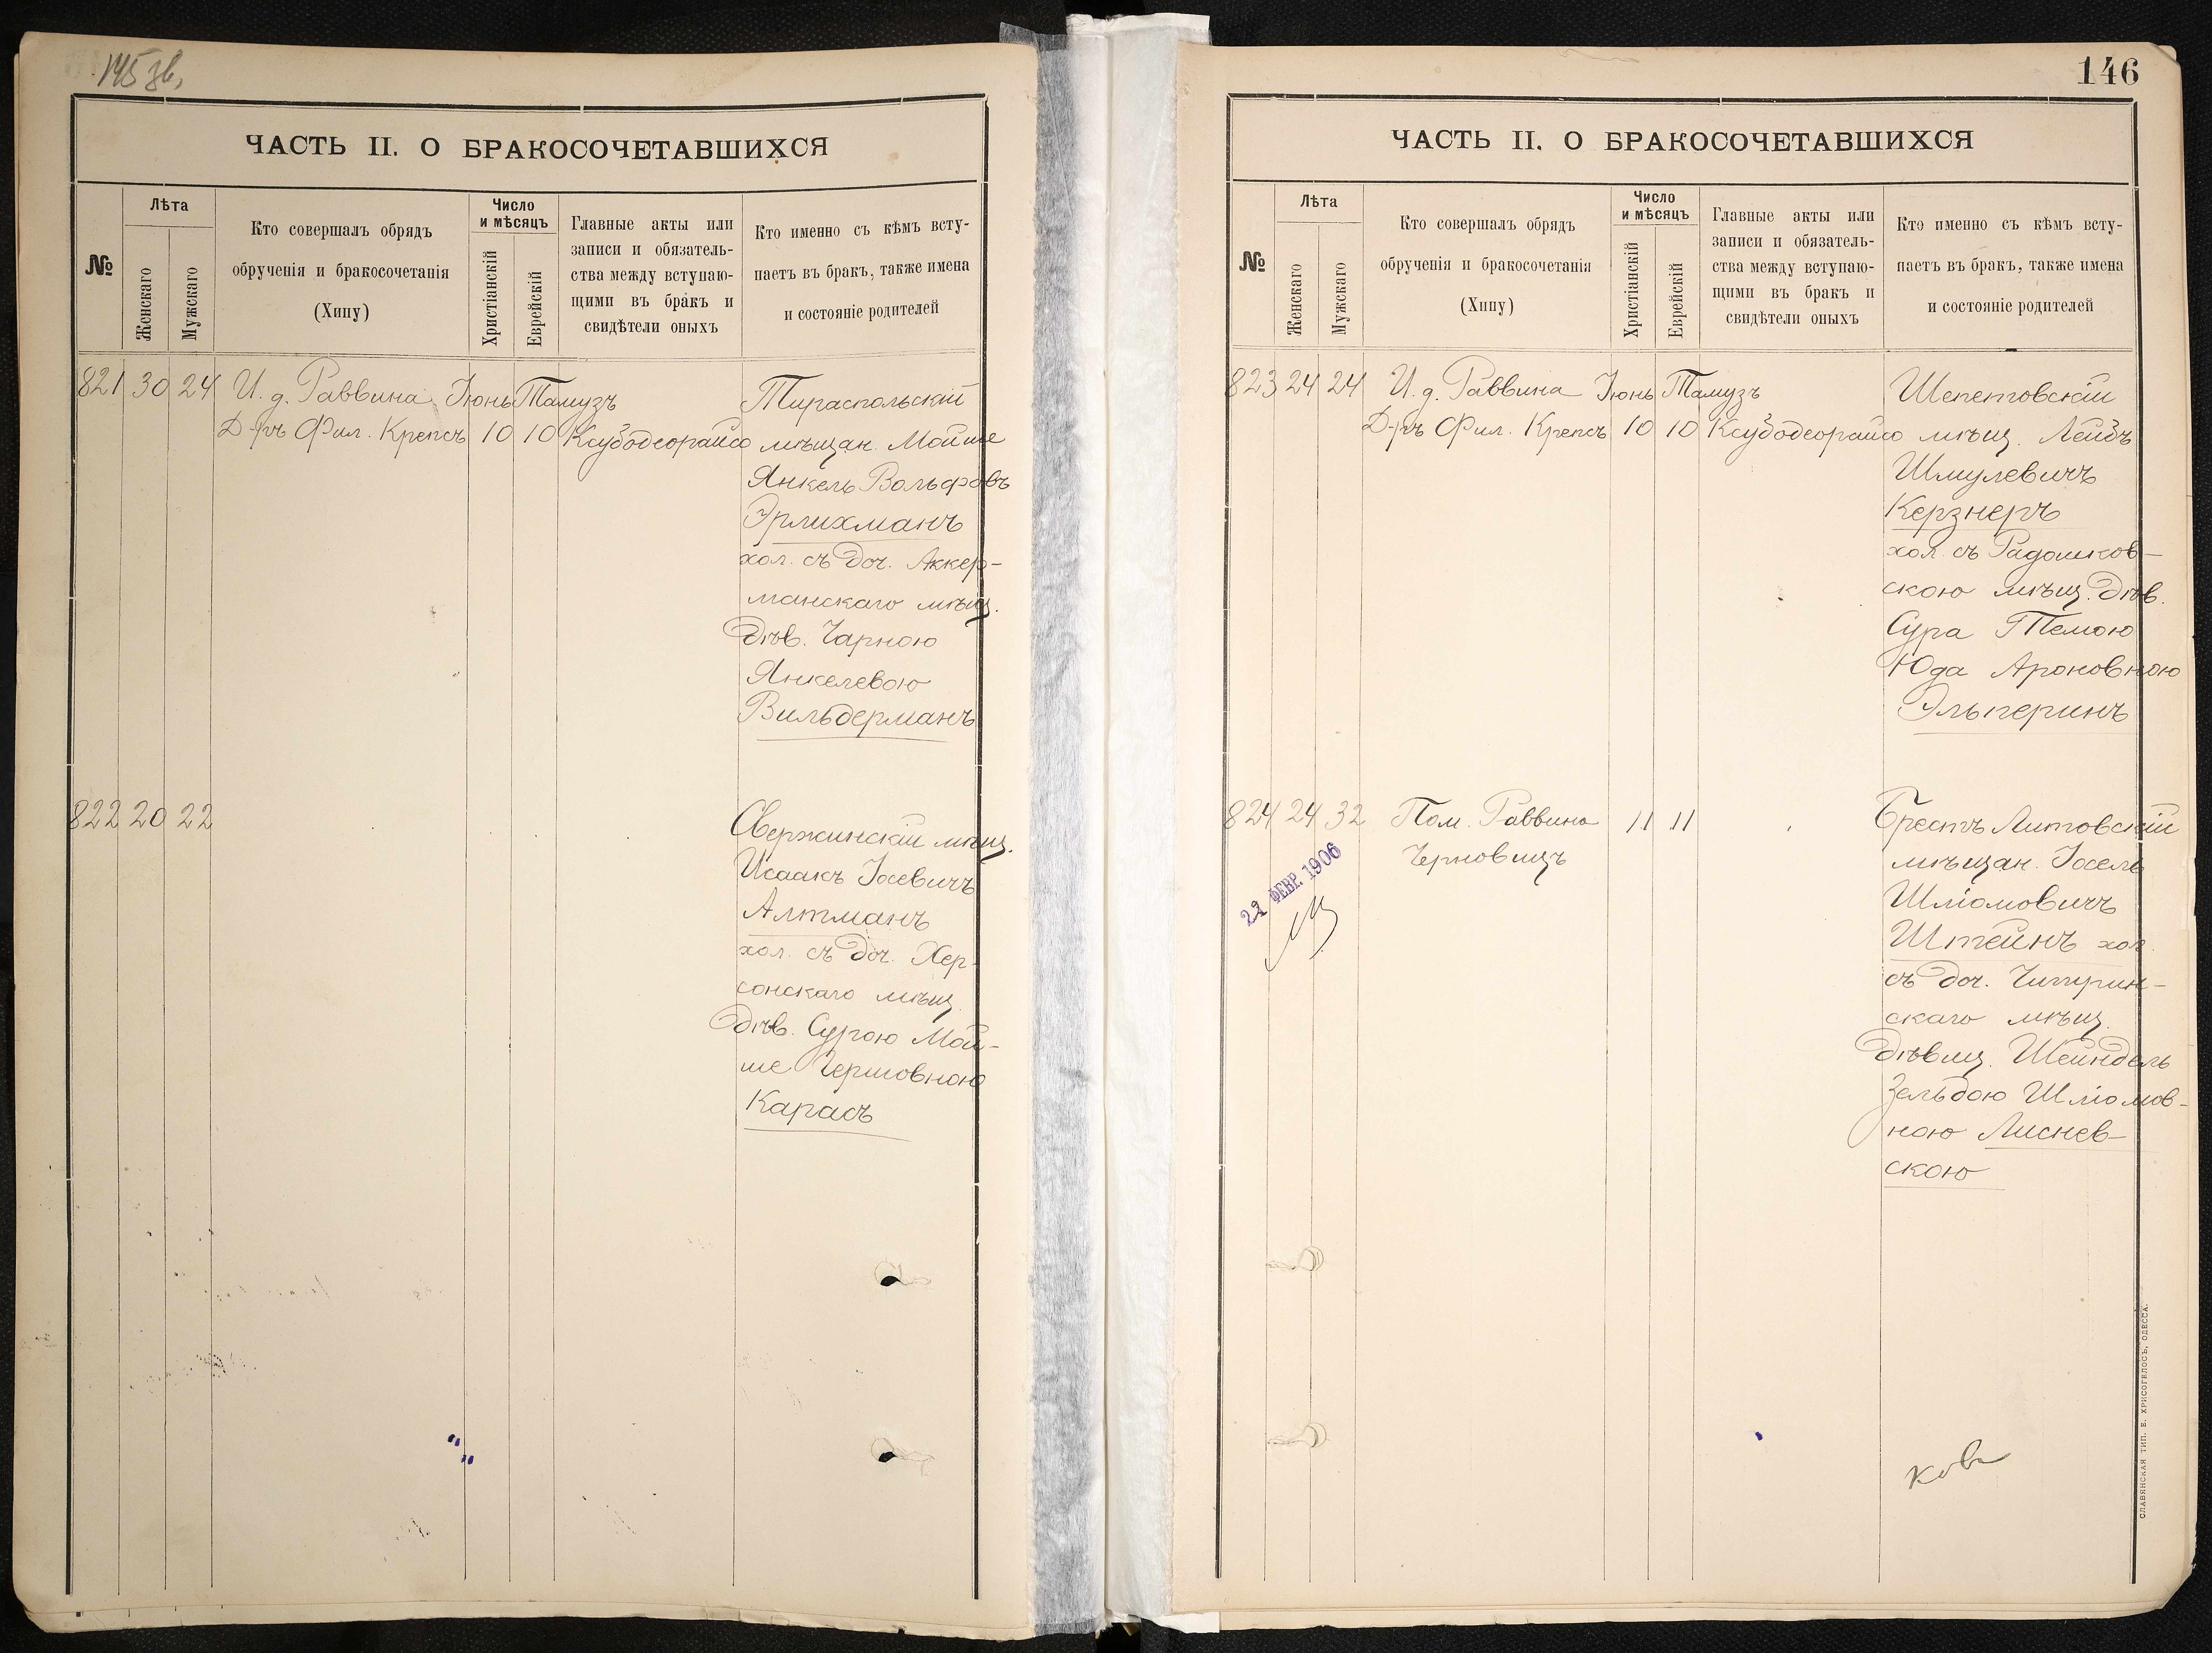 145 зв.
ЧАСТЬ II. О БРАКОСОЧЕТАВШИХСЯ
№
Лѣта
Женскаго
Мужскаго
Кто совершалъ обрядъ
обрученія и бракосочетанія
(Хипу)
Число
и мѣсяцъ
Христіанскій
Еврейскій
Главные акты или
записи и обязатель-
ства между вступаю-
щими въ бракъ и
свидѣтели оныхъ
Кто именно съ кѣмъ всту-
паетъ въ бракъ, также имена
и состояніе родителей
821 30 24 И. д. Раввина Іюнь Тамузъ
Д-ръ Фил. Крепсъ 10 10 Ксубодеорайсо
Тираспольскій
мѣщан. Мойше
Янкель Вольфовъ
Эрлихманъ
хол. съ доч. Аккер-
манскаго мѣщ.
дѣв. Чарною
Янкелевою
Вильдерманъ
822 20 22
Свержинскій мѣщ.
Исаакъ Іосевичъ
Алтманъ
хол. съ доч. Хер-
сонскаго мѣщ.
дѣв. Сурою Мой-
ше Гершовною
Карасъ
146
ЧАСТЬ II. О БРАКОСОЧЕТАВШИХСЯ
№
Лѣта
Женскаго
Мужскаго
Кто совершалъ обрядъ
обрученія и бракосочетанія
(Хипу)
Число
и мѣсяцъ
Христіанскій
Еврейскій
Главные акты или
записи и обязатель-
ства между вступаю-
щими въ бракъ и
свидѣтели оныхъ
Кто именно съ кѣмъ всту-
паетъ въ бракъ, также имена
и состояніе родителей
823 24 24 И. д. Раввина Іюнь Тамузъ
Д-ръ Фил. Крепсъ 10 10 Ксубодеорайсо
Шепетовскій
мѣщ. Лейбъ
Шмулевичъ
Керзнеръ
хол. съ Радошков-
скою мѣщ. дѣв.
Сура Темою
Юда Ароновною
Эльперинъ
824 24 32 Пом. Раввина 11 11
Черновицъ
22 ФЕВР. 1906
Брестъ Литовскій
мѣщан. Іосель
Шліомовичъ
Штейнъ хол.
съ доч. Чигирин-
скаго мѣщ.
дѣвиц. Шейндель
Зельдою Шліомов-
ною Лиснев-
скою
СЛАВЯНСКАЯ ТИП. Е. ХРИСОГЕЛОСЪ, ОДЕССА.